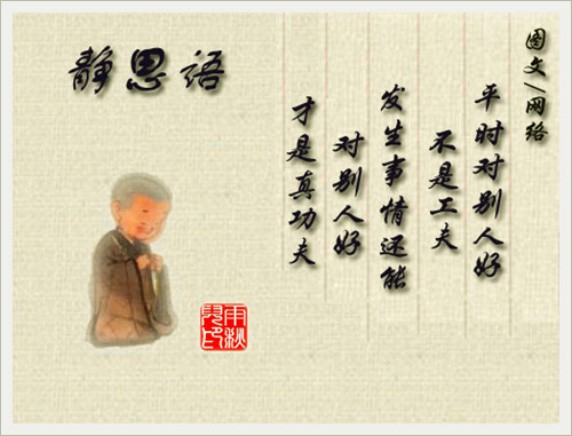 静思语
图文/网络
平时对别人好
不是工夫
发生事情还能
对别人好
才是真功夫